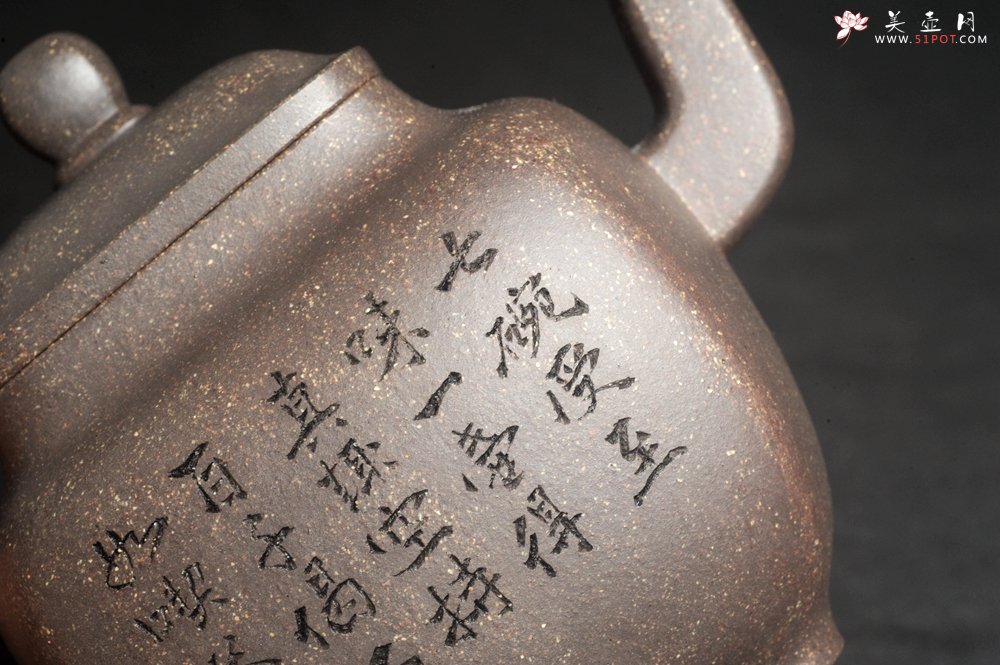 美壶网
WWW.51POT.COM
七碗受至
味一壺得
真趣空持
百千偈
如喫